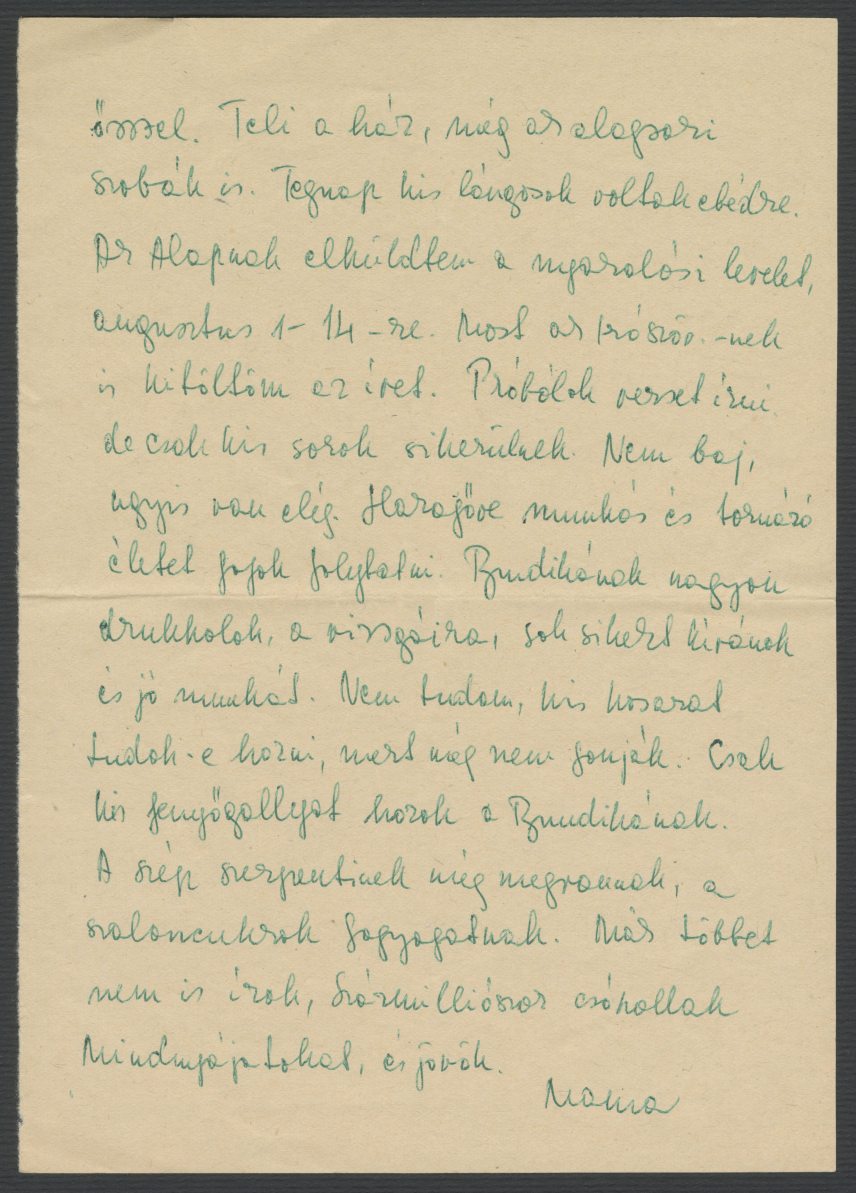 ősszel. Teli a ház, még az alagsori
szobák is. Tegnap kis lángosok voltak ebédre.
Az Alapnak elküldtem a nyaralási levelet,
augusztus 1-14-re. Most az Írószöv.-nek
is kitöltöm az ívet. Próbálok verset írni
de csak kis sorok sikerülnek. Nem baj,
úgyis van elég. Hazajőve munkás és tornázó
életet fogok folytatni. Bundikának nagyon
drukkolok, a vizsgáira, sok sikert kívánok
és jó munkát. Nem tudom, kis kosarat
tudok-e hozni, mert még nem fonják. Csak
kis fenyőgallyat hozok a Bundikának.
A szép szerpentinek még megvannak, a
szaloncukrok fogyogatnak. Már többet
nem is írok, százmilliószor csókollak
Mindnyájatokat, és jövök.
Mama